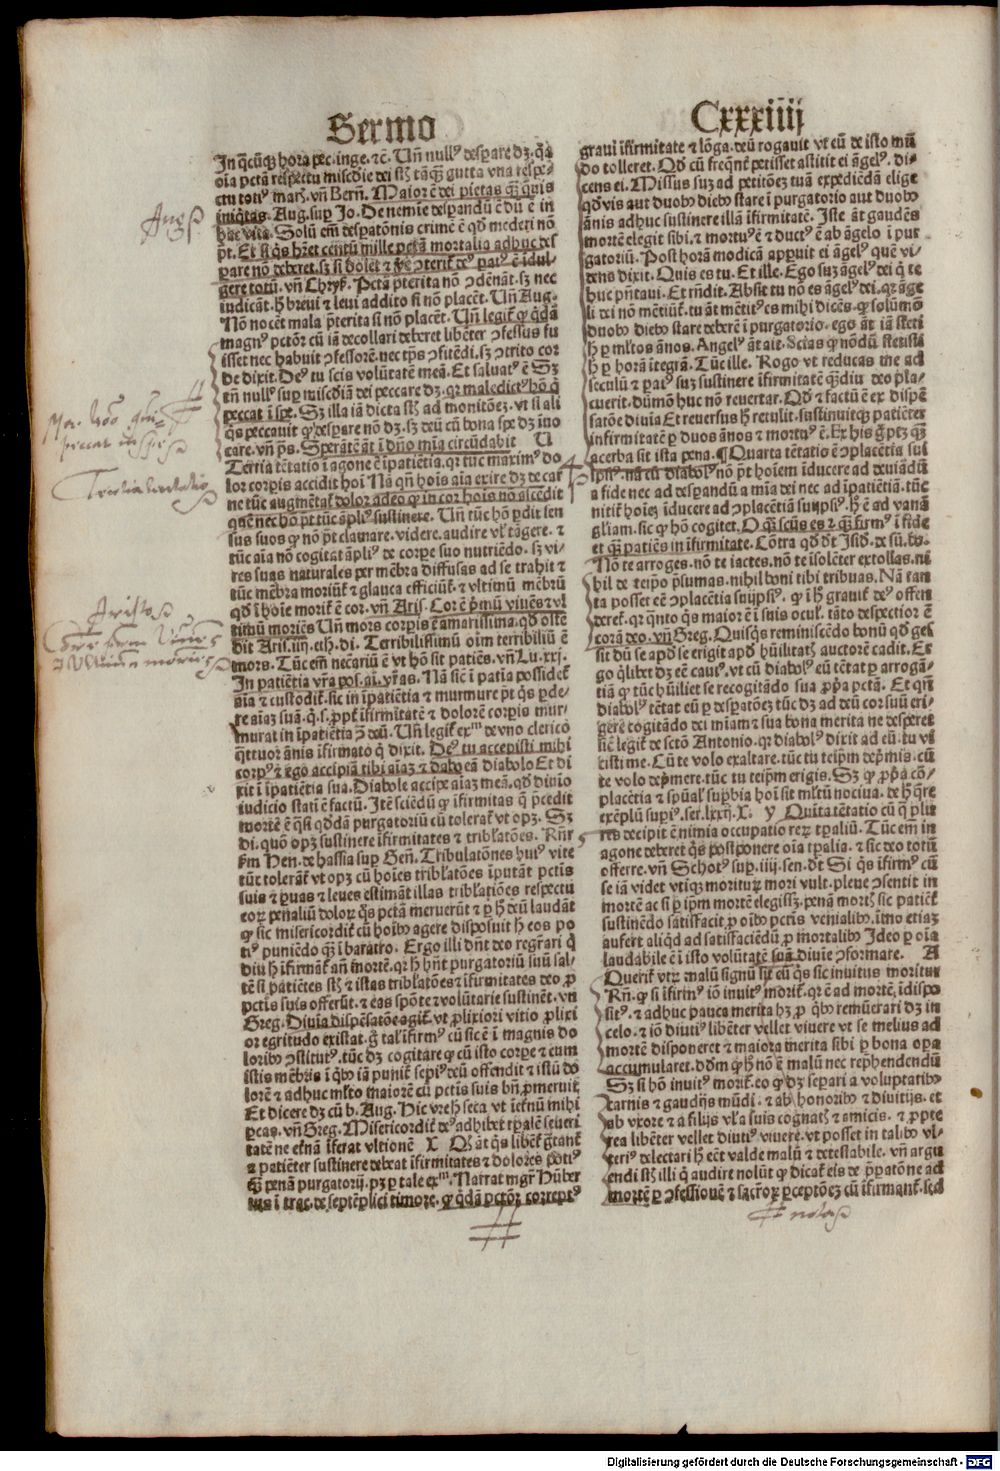 Sermo
Cxxxiiij
In q̄cūq; hora pec. inge. ⁊c̄. Vn̄ null⁹ desꝑare dz. q̄a
oīa pctā respectu miscd̄ie dei st̄ tāq̄ gutta vna respe-
ctu toti⁹ mar. vn̄ Bern̄. Maior ē dei pietas q̄ȝ q̄uis
iniq̄tas. Aug. sup Jo. De nemīe despandū ē dū ē in
hac vita. Solū em̄ despatōnis crimē ē qd̄ mederi nō
pt. Et si q̄s hret centū mille pctā mortalia adhuc des
ꝑare nō deberet. sz si dolet
gere totū. vn̄ Chrys. Pctā pterita nō ꝯdēnāt. sz nec
iudicāt. h breui ⁊ leui addito si nō placēt. Vn̄ Aug.
Nō nocēt mala pterita si nō placēt. Vn̄ legit̄ ꝙ qdā
magn⁹ pctōr cū iā decollari deberet libēter ꝯfessus fu
isset nec habuit ꝯfessorē. nec tp̄s ꝯfitēdi. sz ꝯtrito cor
de dixit. De⁹ tu scis volūtatē meā. Et saluat⁹ ē Sz
tn̄ null⁹ sup miscdiā dei peccare dz. qr maledict⁹ hō q̄
peccat ī spe. Sz illa iā dicta st̄ ad monitōez. vt si ali
q̄s peccauit ꝙ desꝑare nō dz. sz deū cū bona spe dz īuo
care. vn̄ ps. Sperātē āt ī dn̄o mīa circūdabit V
Tertia tētatio ī agone ē īpatiētia. qr tūc maxim⁹ do
lor corpis accidit hoī Nā qn̄ hoīs aīa exire dz de car
ne tūc augmētat̄ dolor adeo ꝙ in cor hoīs nō ascēdit
quē nec hō pt tūc āpli⁹ sustinere. Vn̄ tūc hō ꝑdit sen
sus suos ꝙ nō pt clamare. videre. audire vl̄ tāgere. ⁊
tūc aīa nō cogitat āpli⁹ de corpe suo nutriēdo. sz vi-
res suas naturales per mēbra diffusas ad se trahit ⁊
tūc mēbra moriūt̄ ⁊ glauca efficiūt̄. ⁊ vltimū mēbrū
qd̄ ī hoīe morit̄ ē cor. vn̄ Aris. Cor ē pmū viuēs ⁊ vl
timū moriēs Vn̄ mors corpis ē amarissima. qd̄ ostē
dit Aris. iij. eth. di. Terribilissimū oīm terribiliū ē
mors. Tūc em̄ necariū ē vt hō sit patiēs. vn̄ Lu. xxj.
In patiētia vra pos. ai. vras. Nā sic ī patiētia possidet̄
aīa ⁊ custodit̄. sic in īpatiētia ⁊ murmure pt q̄s ꝑde-
re aīaz suā. q. s. ꝓpt̄ īfirmitatē ⁊ dolorē corpis mur-
murat in īpatiētia ꝯ deū. Vn̄ legit̄ exm de vno clerico
q̄ttuor ānis īfirmato q̄ dixit. De⁹ tu accepisti mihi
corp⁹ ⁊ ego accipiā tibi aīaz ⁊ dabo eā diabolo Et di
xit ī īpatiētia sua. Diabole accipe aīaz meā. qd̄ diuīo
iudicio stati ē factū. Itē sciēdū ꝙ īfirmitas q̄ pcedit
mortē ē q̄si qdā purgatoriū cū tolerat̄ vt opz. Sz
di. quō opz sustinere īfirmitates ⁊ tribl̄atōes. Rn̄r
fm Hen. de hassia sup Gen̄. Tribulatōnes hui⁹ vite
tūc tolerāt̄ vt opz cū hoīes tribl̄atōes īputāt pctis
suis ⁊ ꝑuas ⁊ leues estimāt illas tribl̄atiōes respectu
eoꝝ penaliū doloꝝ q̄s pctā meruerūt ⁊ ꝑ h deū laudāt
ꝙ sic misericordit̄ cū hoīb⁹ agere disposuit h eos po
ti⁹ puniēdo q̄ȝ ī baratro. Ergo illi dn̄t deo regrari q̄
diu h īfirmāt̄ an̄ mortē. qr h hn̄t purgatoriū suū sal-
tē si patiētes st̄ ⁊ istas tribl̄atōes ⁊ īfirmitates deo ꝓ
pctis suis offerūt. ⁊ eas spōte ⁊ volūtarie sustinēt. vn̄
Greg. Diuīa dispēsatōe agit̄. vt ꝓlixiori vitio ꝓlixi
or egritudo existat. g̊ tal̄ īfirm⁹ cū sic ē ī magnis do
lorib⁹ ꝯstitut⁹. tūc dz cogitare ꝙ cū isto corpe ⁊ cum
istis mēbris ī qb⁹ iā punit̄ sepi⁹ deū offendit ⁊ istū do
lorē ⁊ adhuc ml̄to maiorē cū pctis suis bn̄ ꝓmeruit
Et dicere dz cū b. Aug. Hic vre h seca vt īetnū mihi
ꝑcas. vn̄ Greg. Misericordit̄ de⁹ adhibet tꝑalē seueri
tatē ne etnā īferat vltionē X Qd̄ āt q̄s libēt̄ ⁊ grātāt̄
⁊ patiēter sustinere debeat īfirmitates ⁊ dolores poti⁹
q̄ȝ penā purgatorij. pz ꝑ tale exm. Narrat mgr̄ Hūber
tus ī trac. de septēplici timore. ꝙ qdā pctōr corrept⁹
graui īfirmitate ⁊ lōga. deū rogauit vt eū de isto mū
do tolleret. Qd̄ cū freqn̄t petisset astitit ei āgel⁹. di-
cens ei. Missus suz ad petitōez tuā expediēdā elige
qd̄ vis aut duob⁹ dieb⁹ stare ī purgatorio aut duob⁹
ānis adhuc sustinere illā īfirmitatē. Iste āt gaudēs
mortē elegit sibi. ⁊ mortu⁹ ē ⁊ duct⁹ ē ab āgelo ī pur
gatoriū. Post horā modicā apparuit ei āgel⁹ quē vi-
dens dixit. Quis es tu. Et ille. Ego suz āgel⁹ dei q̄ te
huc pn̄tauī. Et rn̄dit. Absit tu nō es āgel⁹ dei. qr āge
li dei nō mētiūt̄. tu āt mētit⁹ es mihi dicēs. ꝙ solūmō
duob⁹ dieb⁹ stare deberē ī purgatorio. ego āt iā steti
h ꝑ ml̄tos ānos. Angel⁹ āt ait. Scias ꝙ nōdū stetisti
h ꝑ horā ītegrā. Tūc ille. Rogo vt reducas me ad
seculū ⁊ pat⁹ suz sustinere īfirmitatē q̄ȝdiu deo pla-
cuerit. dūmō huc nō reuertar. Qd̄ ⁊ factū ē ex dispē
satōe diuīa Et reuersus h retulit. sustinuitq; patiēter
infirmitatē ꝑ duos ānos ⁊ mortu⁹ ē. Ex his g̊ ptz q̄ȝ
acerba sit ista pena. ¶ Quarta tētatio ē ꝯplacētia sui
ipsi⁹. nā cū diabol⁹ nō pt hoīem īducere ad deuiādū
a fide nec ad despandū a mīa dei nec ad īpatiētiā. tūc
nitit̄ hoīez īducere ad ꝯplacētiā suiipsi⁹. h ē ad vanā
gl̄iam. sic ꝙ hō cogitet. O q̄ȝ scūs es ⁊ q̄ȝ firm⁹ ī fide
et q̄ȝ patiēs in īfirmitate. Cōtra qd̄ dt Isid. de sū. bo.
Nō te arroges. nō te iactes. nō te īsolēter extollas. ni
hil de teipo psumas. nihil boni tibi tribuas. Nā tan
ta posset eē ꝯplacētia suiipsi⁹. ꝙ ī h grauit̄ de⁹ offen
deret̄. qr qn̄to q̄s maior ē ī suis ocul. tāto despectior ē
corā deo. vn̄ Greg. Quisq̄s reminiscēdo bonū qd̄ ges
sit dū se apd̄ se erigit apd̄ hūilitat⁹ auctorē cadit. Er
go q̄libet dz eē caut⁹. vt cū diabol⁹ eū tētat ꝑ arrogā-
tiā ꝙ tūc hūiliet se recogitādo sua ꝓpa pctā. Et qn̄
diabol⁹ tētat eū ꝑ despatōez tūc dz ad deū cor suū eri-
gere cogitādo dei mīam ⁊ sua bona merita ne despet
sic legit̄ de scto Antonio. qr diabol⁹ dixit ad eū. tu vi
cisti me. Cū te volo exaltare. tūc tu teipm depmis. cū
te volo depmere. tūc tu teipm erigis. Sz ꝙ ꝓpa cō-
placētia ⁊ spūal̄ supbia hoī sit ml̄tū nociua. de h q̄re
exēplū supi⁹. ser. lxxij. X. Y Quīta tētatio cū q̄ plu
res decipit ē nimia occupatio reꝝ tꝑaliū. Tūc em̄ in
agone deberet q̄s postponere oīa tꝑalia. ⁊ sic deo totū
offerre. vn̄ Schot⁹ sup. iiij. sen. dt Si q̄s īfirm⁹ cū
se iā videt vtiq; morituꝝ mori vult. plene ꝯsentit in
mortē ac si ꝑ ipm mortē elegissz. penā mort̄ sic patiēt̄
sustinēdo satisfacit ꝓ oīb⁹ pctis venialib⁹. īmo etiaz
aufert aliqd ad satisfaciēdū ꝓ mortalib⁹ Ideo ꝑ oīa
laudabile ē ī isto volūtatē suā diuīe ꝯformare. A
Querit̄ vtꝝ malū signū sit eū q̄s sic inuitus moritur
Rn̄. ꝙ si īfirm⁹ iō inuit⁹ morit̄. qr ē ad mortē īdispo
sit⁹. ⁊ adhuc pauca merita hz ꝓ qb⁹ remūerari dz in
celo. ⁊ iō diuti⁹ libēter vellet viuere vt se melius ad
mortē disponeret ⁊ maiora merita sibi ꝑ bona opa
accumularet. ddm ꝙ h nō ē malū nec rephendendū
Sz si hō inuit⁹ morit̄. eo ꝙ dz separi a voluptatib⁹
carnis ⁊ gaudijs mūdi. ⁊ ab honorib⁹ ⁊ diuitijs. et
ab vxore ⁊ a filijs vl̄a suis cognat̄ ⁊ amicis. ⁊ ꝓpte
rea libēter vellet diuti⁹ viuere. vt posset in talib⁹ vl-
teri⁹ delectari h eēt valde malū ⁊ detestabile. vn̄ argu
endi st̄ illi q̄ audire nolūt ꝙ dicat̄ eis de ppatōne ad
mortē ꝑ ꝯfessionē ⁊ sacr̄oꝝ ꝑceptōez cū īfirmant̄. sed
Tertia tentatio
Aristo
Cor primum Viuens
⁊ Vltimum moriens
nota
Digitalisierung gefördert durch die Deutsche Forschungsgemeinschaft - DFG